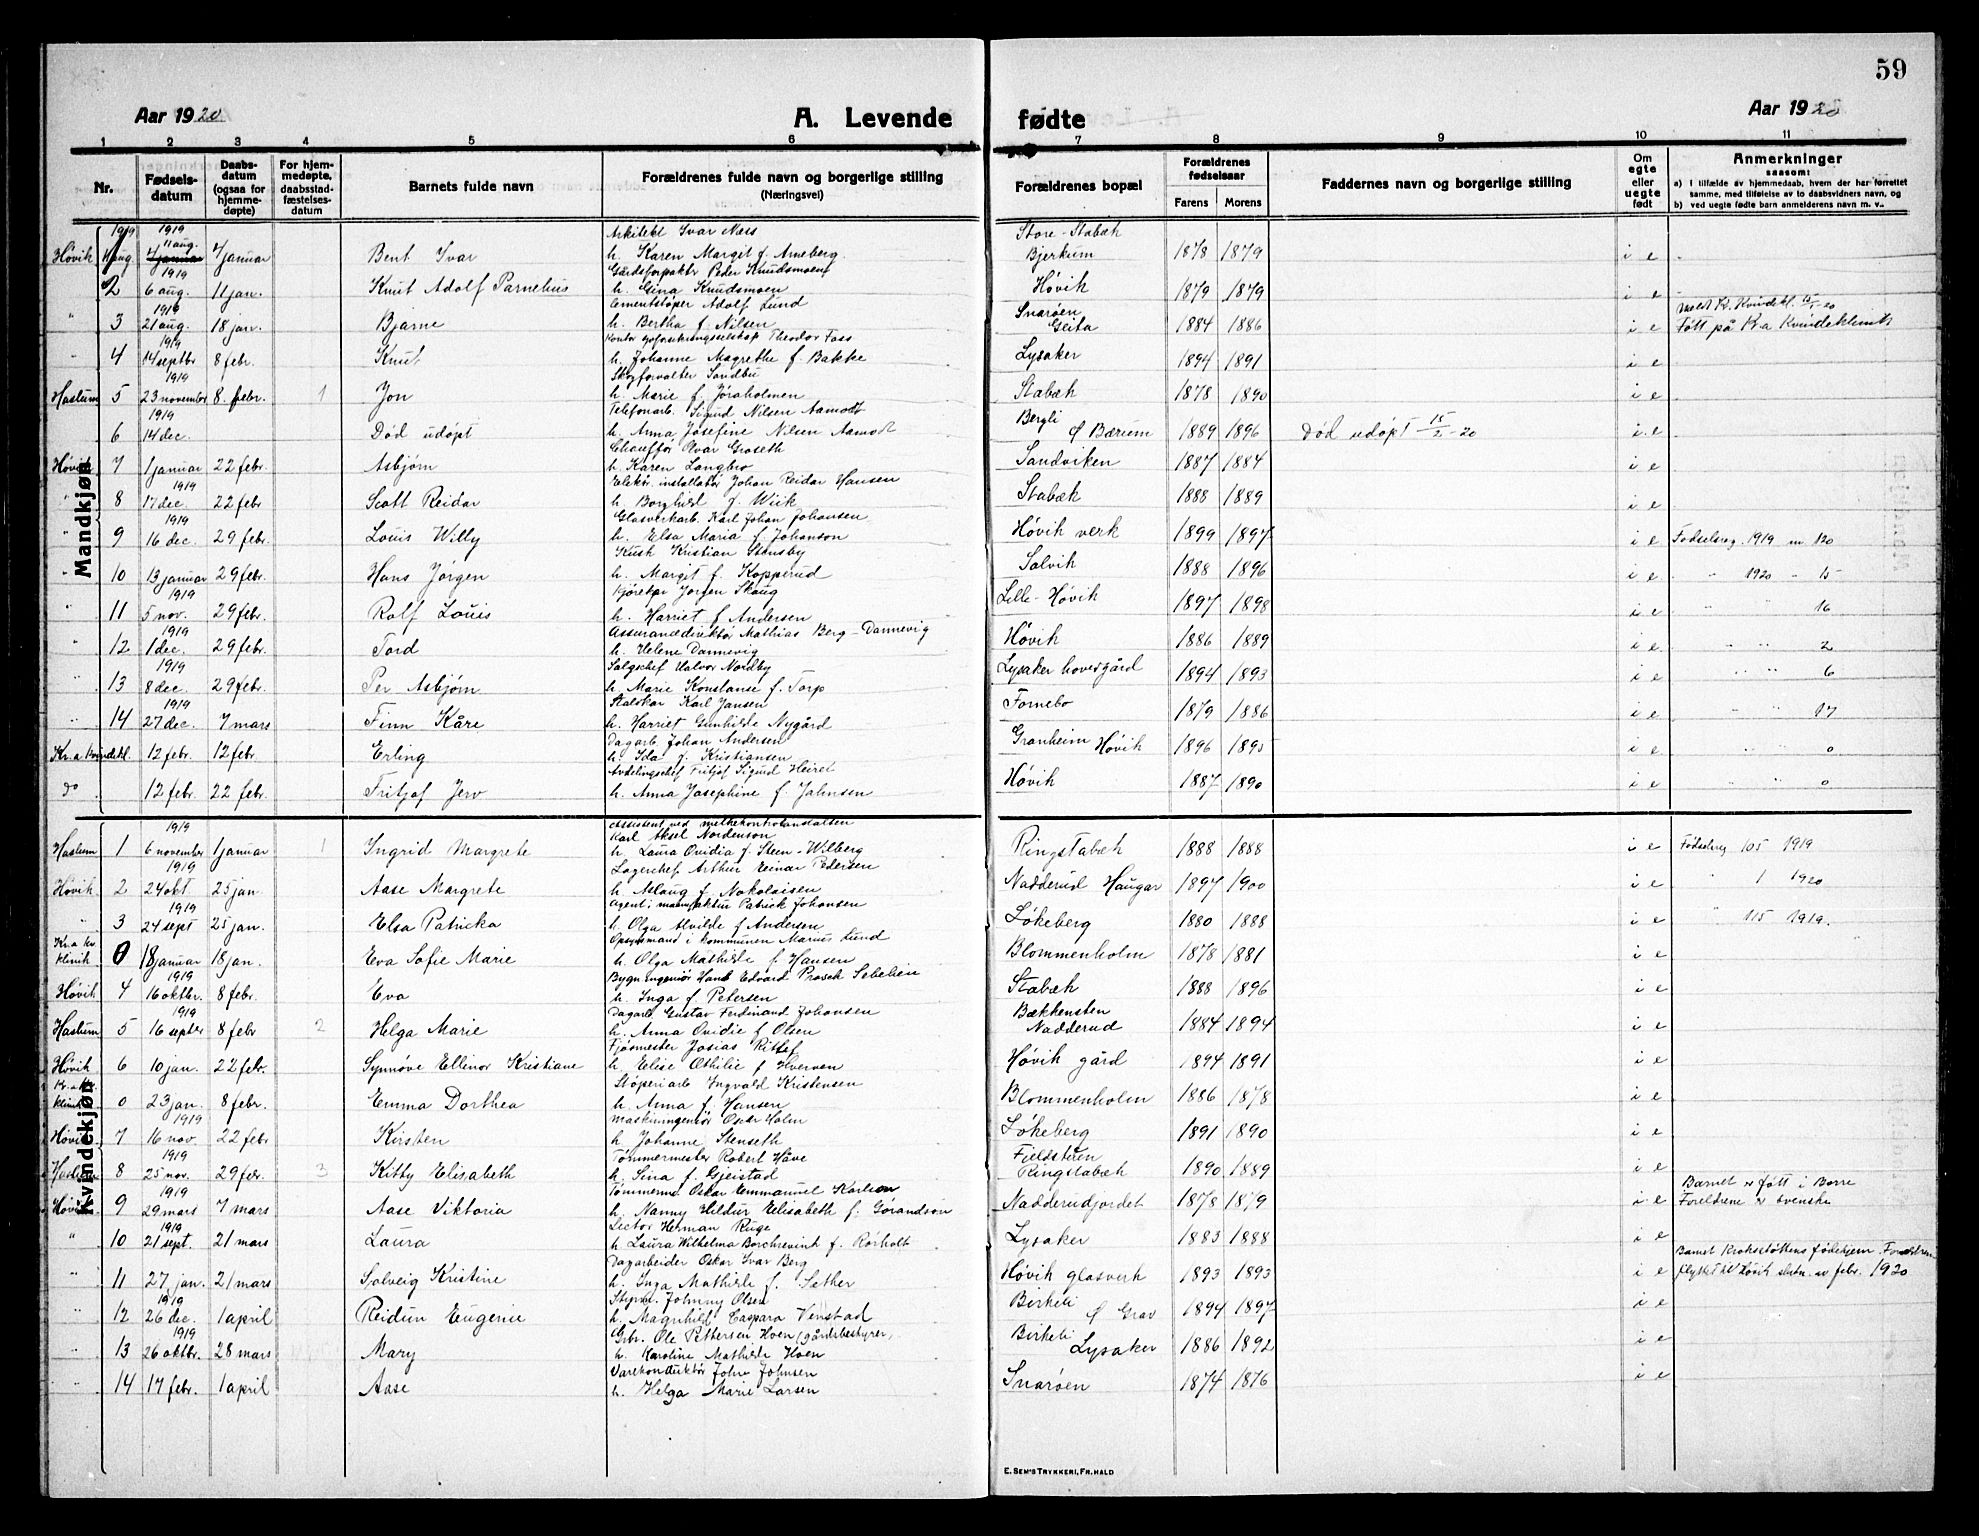 59
Aar 1920 A. Levende fødte Aar 1920
1 2 3 4 5 6 7 8 9 10 11
Nr. Fødsels-datum Daabs-datum (ogsaa for hjemme-døpte) For hjem-medøpte, daabsstad-fæstelses-datum Barnets fulde navn Forældrenes fulde navn og borgerlige stilling (Næringsvei) Forældrenes bopæl Forældrenes fødselsaar Farens Morens Faddernes navn og borgerlige stilling Om egte eller uegte født Anmerkninger saasom: a) I tilfælde av hjemmedaab, hvem der har forrettet samme, med tilføielse av to daabsvidners navn, og b) ved uegte fødte barn anmelderens navn m. v..
Mandkjøn
Høvik 1 1919 11 aug. 4 januar Bent Ivar Arkitekt Ivar Næss Store-Stabæk
h. Karen Margit f. Arneberg Bjerkum 1878 1879 i e
2 1919 6 aug. 11 jan. Knut Adolf Parnelius Gårdsforpakter Peder Knudsmoen
h. Gina Knudsmoen Høvik 1879 1879 i e
" 3 1919 21 aug. 18 jan. Bjarne Cementstøper Adolf Lund Snarøen
h. Bertha f. Nilsen Geita 1884 1886 i e Født på Kr.a Kvindeklinik
" 4 1919 14 septbr 8 febr. Knut Theodor Foss
h. Johanne Magrethe f. Bakke Lysaker 1894 1891 i e
Haslum 5 1919 23 november 8. febr. 1 Jon Skogforvalter Sandbu
h. Marie f. Jøraholmen Stabæk 1878 1890 i e
6 1919 14 dec. Død udøpt Telefonarb. Sigurd Nilsen Aamodt Bergli
h. Anna Josefine Nilsen Aamodt Ø Bærum 1889 1896 Død udøpt 15/2-20 i e
Høvik 7 1 januar 22 febr. Asbjørn Chauffør Olvar Groseth
h. Karen Langbro Sandviken 1887 1884 i e
" 8 1919 17 dec. 22 febr Scott Reidar Elektr. installatør Johan Reidar Hansen
h. Borghild f. Wiik Stabæk 1888 1889 i e
" 9 1919 16 dec. 29 febr. Louis Willy Glasverkarb. Karl Johan Johansen
h. Elsa Maria f. Johanson Høvik verk 1899 1897 i e Fødselsreg. 1919 nr. 120
" 10 13 januar 29 febr. Hans Jørgen Kusk Kristian Stensby
h. Margit f. Kopperud Solvik 1888 1896 i e " 1920 " 15
" 11 1919 5 nov. 29 febr. Rolf Louis Kjørekar Jørgen Skaug
h. Harriet f Andersen Lille-Høvik 1897 1898 i e " " 16
" 12 1919 1 dec. 29 febr. Tord Assurancedirektør Mathias Berg-Dannevig
h. Helene Dannevig Høvik 1886 1889 i e " " 2
" 13 1919 8 dec. 29 febr. Per Asbjørn Salgschef Halvor Nordby
h. Marie Konstanse f. Torp Lysaker hovedgård 1894 1893 i e " " 6
" 14 1919 27 dec. 7 mars Finn Kåre Karl Jansen
h. Harriet Gunhilde Nygård Fornebo 1879 1886 i e " " 17
Kr.a Kvindekl. 12 febr. 12 febr. Erling Dagarb. Johan Andersen
h. Ida f. Kristiansen Granheim Høvik 1896 1895 i e " " 0
do 12 febr. 22 febr. Fritjof Jerv Avdelingschef Fritjof Sigurd Heiret
h. Anna Josephine f. Johnsen Høvik 1887 1890 i e " " 0
Kvindekjøn
Haslum 1 1919 6 november 1 januar 1 Ingrid Margrete Assistent ved melkekontrolanstalten
Karl Aksel Nordenson
h. Laura Ovidia f. Steen-Wilberg Ringstabæk 1888 1888 i e Fødselsreg 105 1919
Høvik 2 1919 24 okt 25 jan. Aase Margrete Lagerchef Arthur Einar Pedersen
h. Aslaug f. Nokolaisen Nadderud Haugar 1897 1900 i e " 1 1920
" 3 1919 24 sept 25 jan. Elsa Patricka Agent i manufaktur Patrick Johansen
h. Olga Alvilde f. Andersen Løkeberg 1880 1888 i e " 115 1919.
Kr.a kv. klinik. 0 18 januar 18 jan. Eva Sofie Marie Opsynsmand i kommunen Marius Lund
h. Olga Mathilde f. Hansen Blommenholm 1878 1881 i e
Høvik 4 1919 16 oktbr. 8 febr. Eva Bygn. ingeniør Hans Edvard Prosch Sebelien
h. Inga f. Petersen Stabæk 1888 1896 i e
Haslum 5 1919 16 septbr 8 febr 2 Helga Marie Dagarb. Gustav Ferdinand Johansen Bækkensten
h. Anna Ovidie f Olsen Nadderud 1884 1894 i e
Høvik 6 10 jan. 22 febr. Synnøve Ellinor Kristiane Fjøsmester Josias
h. Elise Othilie f Hverven Høvik gård 1894 1891 i e
Kr.a Kv. klinik 0 23 jan. 8 febr. Emma Dorthea Støperiarb Ingvald Kristensen
h. Anna f. Hansen Blommenholm 1886 1878 i e
Høvik 7 1919 16 nov. 22 febr Kirsten Maskiningeniør Oscar Holm
h. Johanne Stenseth Løkeberg 1891 1890 i e
Haslum 8 1919 25 nov. 29 febr. 3 Kitty Elisabeth Tømmermester Robert Håve
h. Sina f. Gjeistad Ringstabæk 1890 1889 i e
Høvik 9 1919 29 mars 7 mars Aase Viktoria Tømmerm Oskar Emmanuel Karlson Barnet er født i Borre
h. Nanny Heldur Elisabeth f. Görandson Nadderudjordet 1878 1879 i e Foreldrene er svenske
" 10 1919 21 sept. 21 mars Laura Lector Herman Ruge
h. Laura Wilhelma Borchrevink f. Rørholt Lysaker 1883 1888 i e
" 11 27 jan. 21 mars Solveig Kristine Dagarbeider Oskar Ivar Berg
h. Inga Mathilde f. Sether Høvik glasverk 1893 1893 i e flyttet til Høvik slutn. av febr. 1920
" 12 1919 26 dec. 1 april Reidun Eugenie Styrm. Johnny Olsen Birkeli
h. Magnhild Caspara Venstad Ø Grav 1894 1897 i e
" 13 1919 26 oktbr. 28 mars Mary Grb. Ole Pettersen Hoen (gårdsbestyrer)
h. Karoline Mathilde Hoen Birkeli Lysaker 1886 1892 i e
" 14 17 febr. 1 april Aase Varekonduktør John Johnsen
h. Helga Marie Larsen Snarøen 1874 1876 i e
E. SEM'S TRYKKERI, FR.HALD